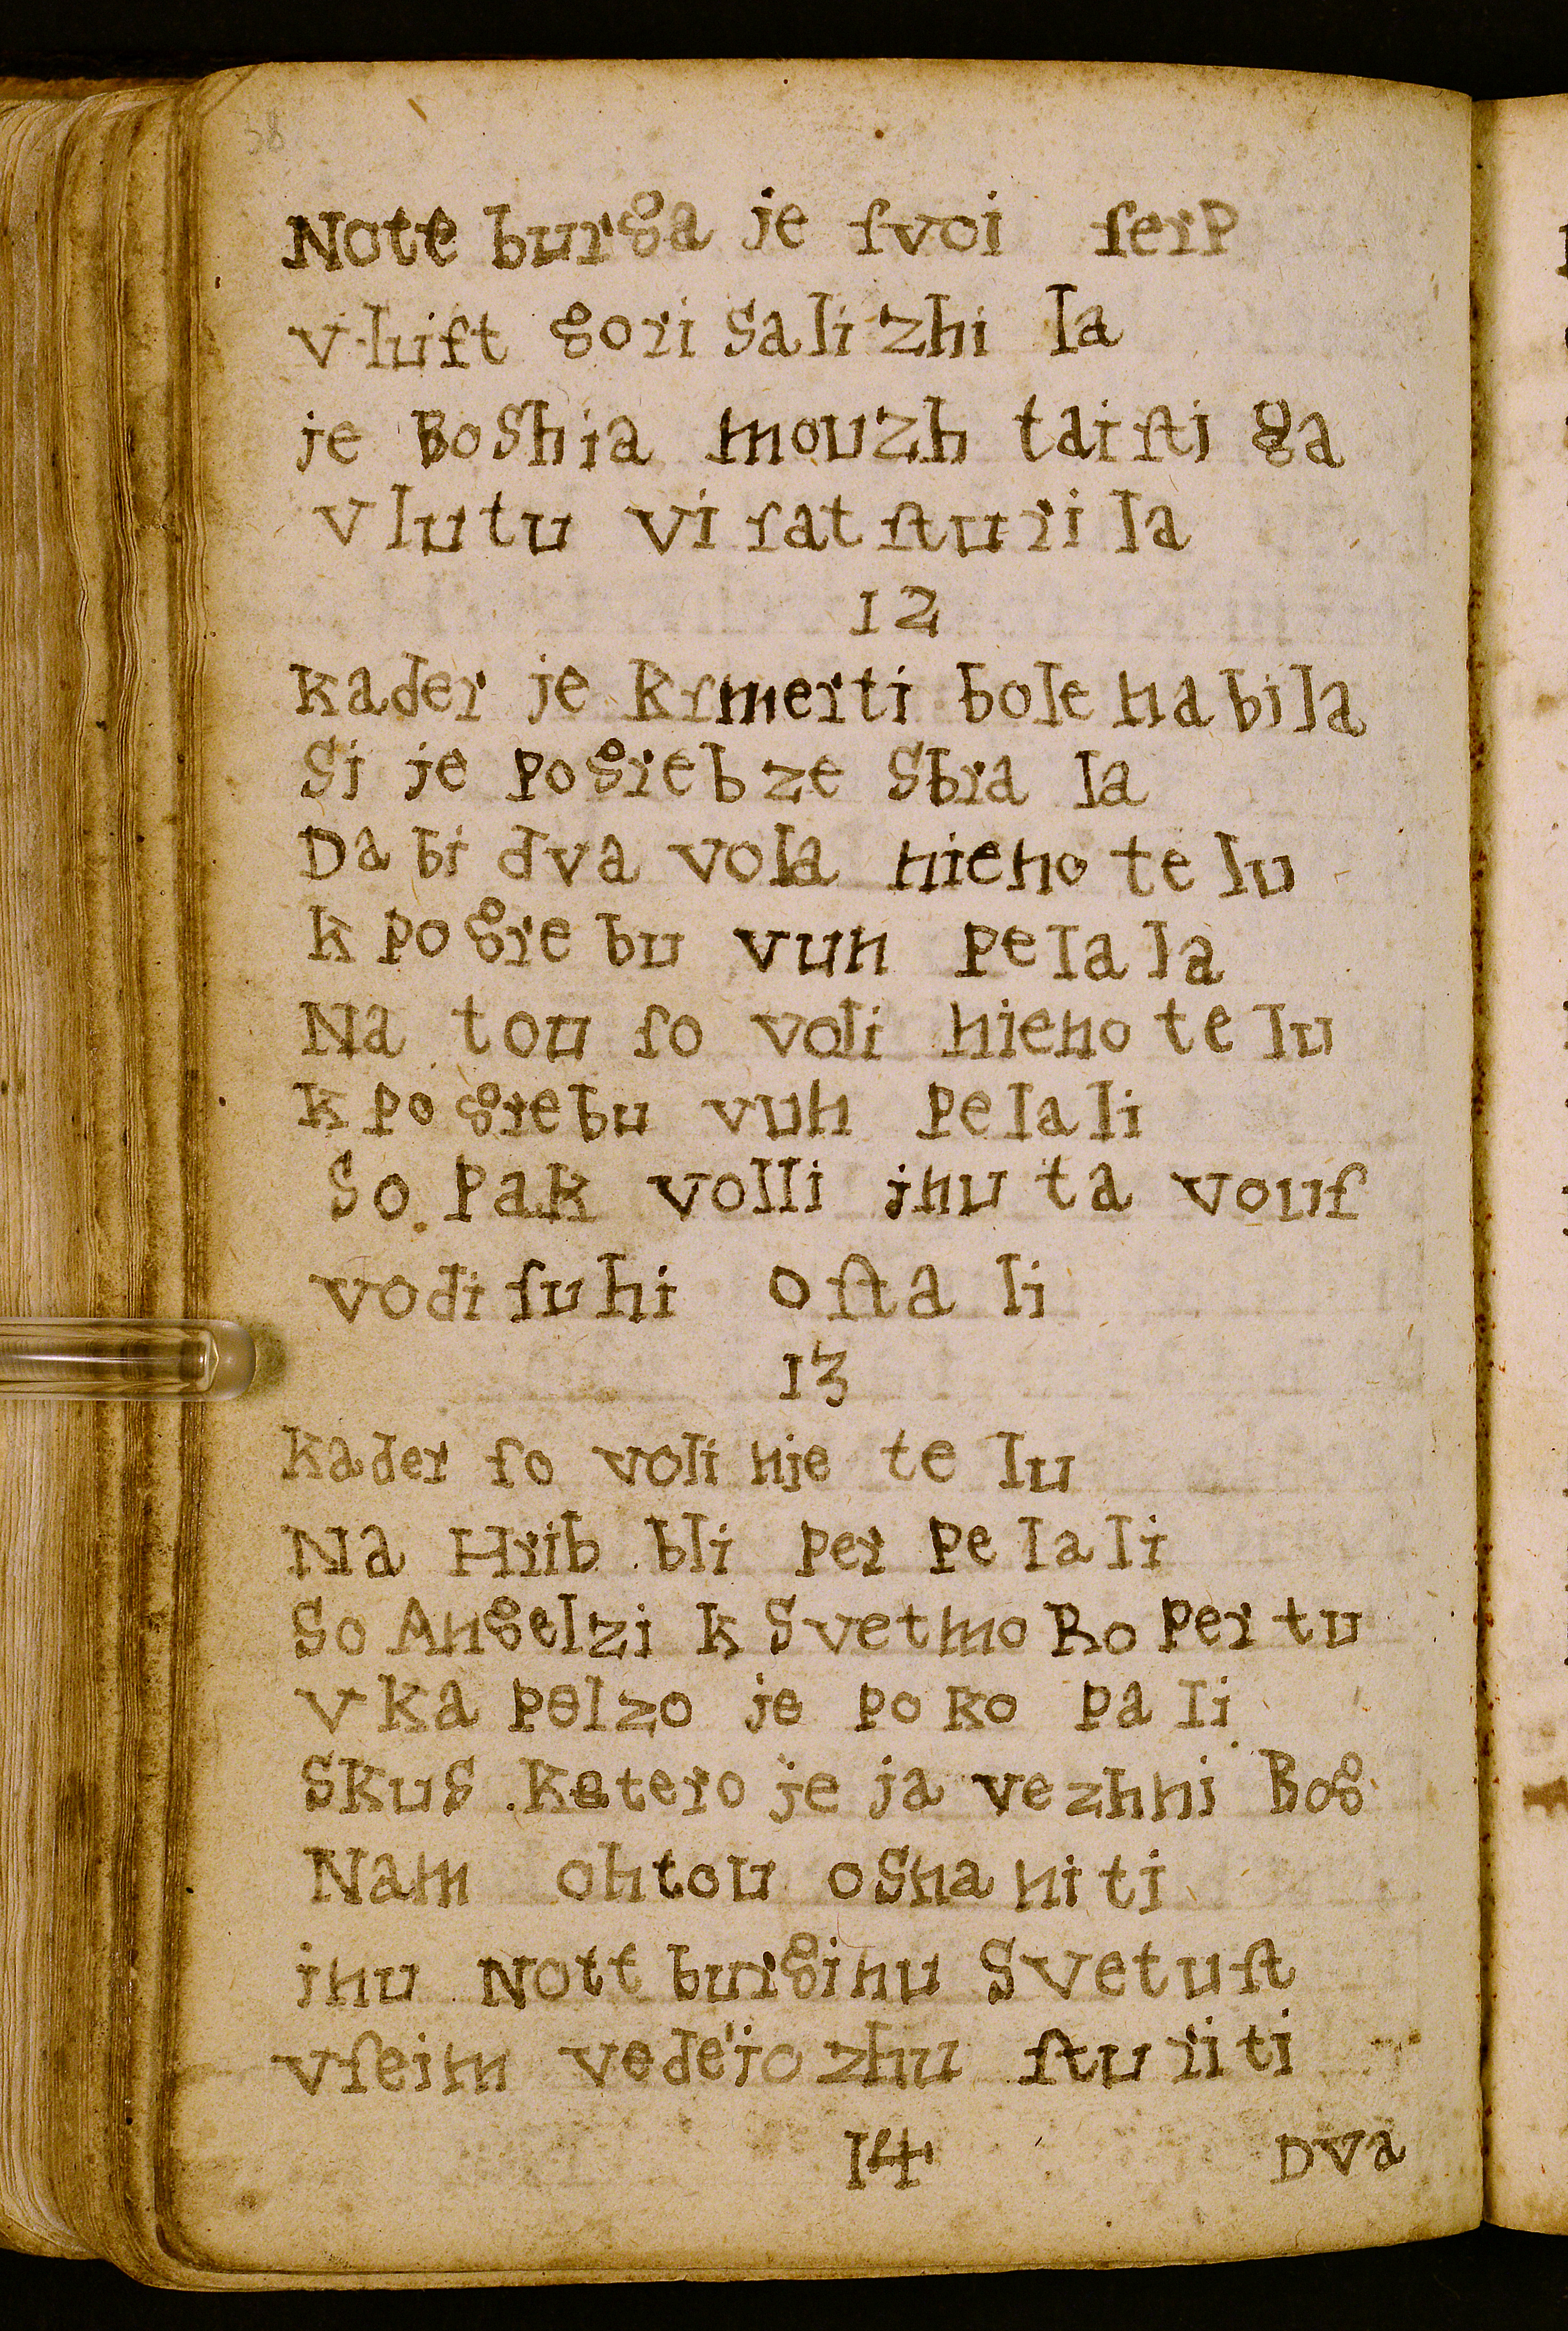 38
Noteburga je ſvoi ſerp
v luift gori Salizhila
je Boshia mouzh taiſti ga
v lutu vi ſatſturila
12
kader je kſmerti bolena bila
Si je pogrebze Sbrala
Da bi dva vola nieno telu
k pogrebu vun pelala
Na tou ſo voli nieno telu
k pogrebu vun pelali
So pak volli inu ta vouſ
vodi ſuhi oſtali
13
kader ſo voli nje telu
Na Hrib bli perpelali
So Angelzi k Svetmo Ropertu
v kapelzo je pokopali
Skus katero je ja vezhni Bog
Nam ohtou osnaniti
inu Nottburginu Svetuſt
vſeim vedejozhu ſturiti
14 Dva